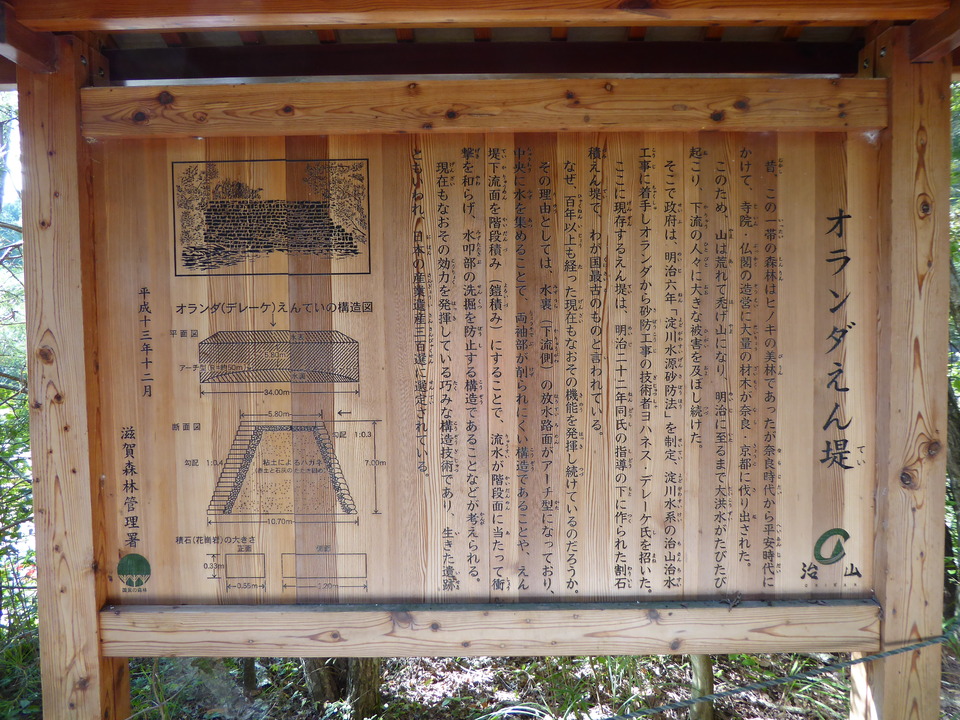 オランダえん堤
てい
治山
昔、この一帯の森林はヒノキの美林であったが奈良時代から平安時代に
かけて、寺院・仏閣の造営に大量の材木が奈良・京都に伐り出された。
このため、山は荒れて禿げ山になり、明治に至るまで大洪水がたびたび
起こり、下流の人々に大きな被害を及ぼし続けた。
そこで政府は、明治六年「淀川水源砂防法」を制定、淀川水系の治山治水
工事に着手しオランダから砂防工事の技術者ヨハネス・デレーケ氏を招いた。
ここに現存するえん堤は、明治二十二年同氏の指導の下に作られた割石
積えん堤で、わが国最古のものと言われている。
なぜ、百年以上も経った現在もなおその機能を発揮し続けているのだろうか。
その理由としては、水裏（下流側）の放水路面がアーチ型になっており、
中央に水を集めることで、両袖部が削られにくい構造であることや、えん
堤下流面を階段積み（鎧積み）にすることで、流水が階段面に当たって衝
撃を和らげ、水叩部の洗掘を防止する構造であることなどが考えられる。
現在もなおその効力を発揮している巧みな構造技術であり、生きた遺跡
ともいわれ、日本の産業遺産三百選に選定されている。
オランダ(デレーケ)えんていの構造図
平面図
5.80m
アーチ型(R=約50m)
34.00m
断面図
5.80m
勾配 1:0.3
勾配 1:0.4
粘土によるハガネ
7.00m
10.70m
積石(花崗岩)の大きさ
正面
側面
0.33m
0.55m
1.20m
平成十三年十二月
滋賀森林管理署
国有の森林